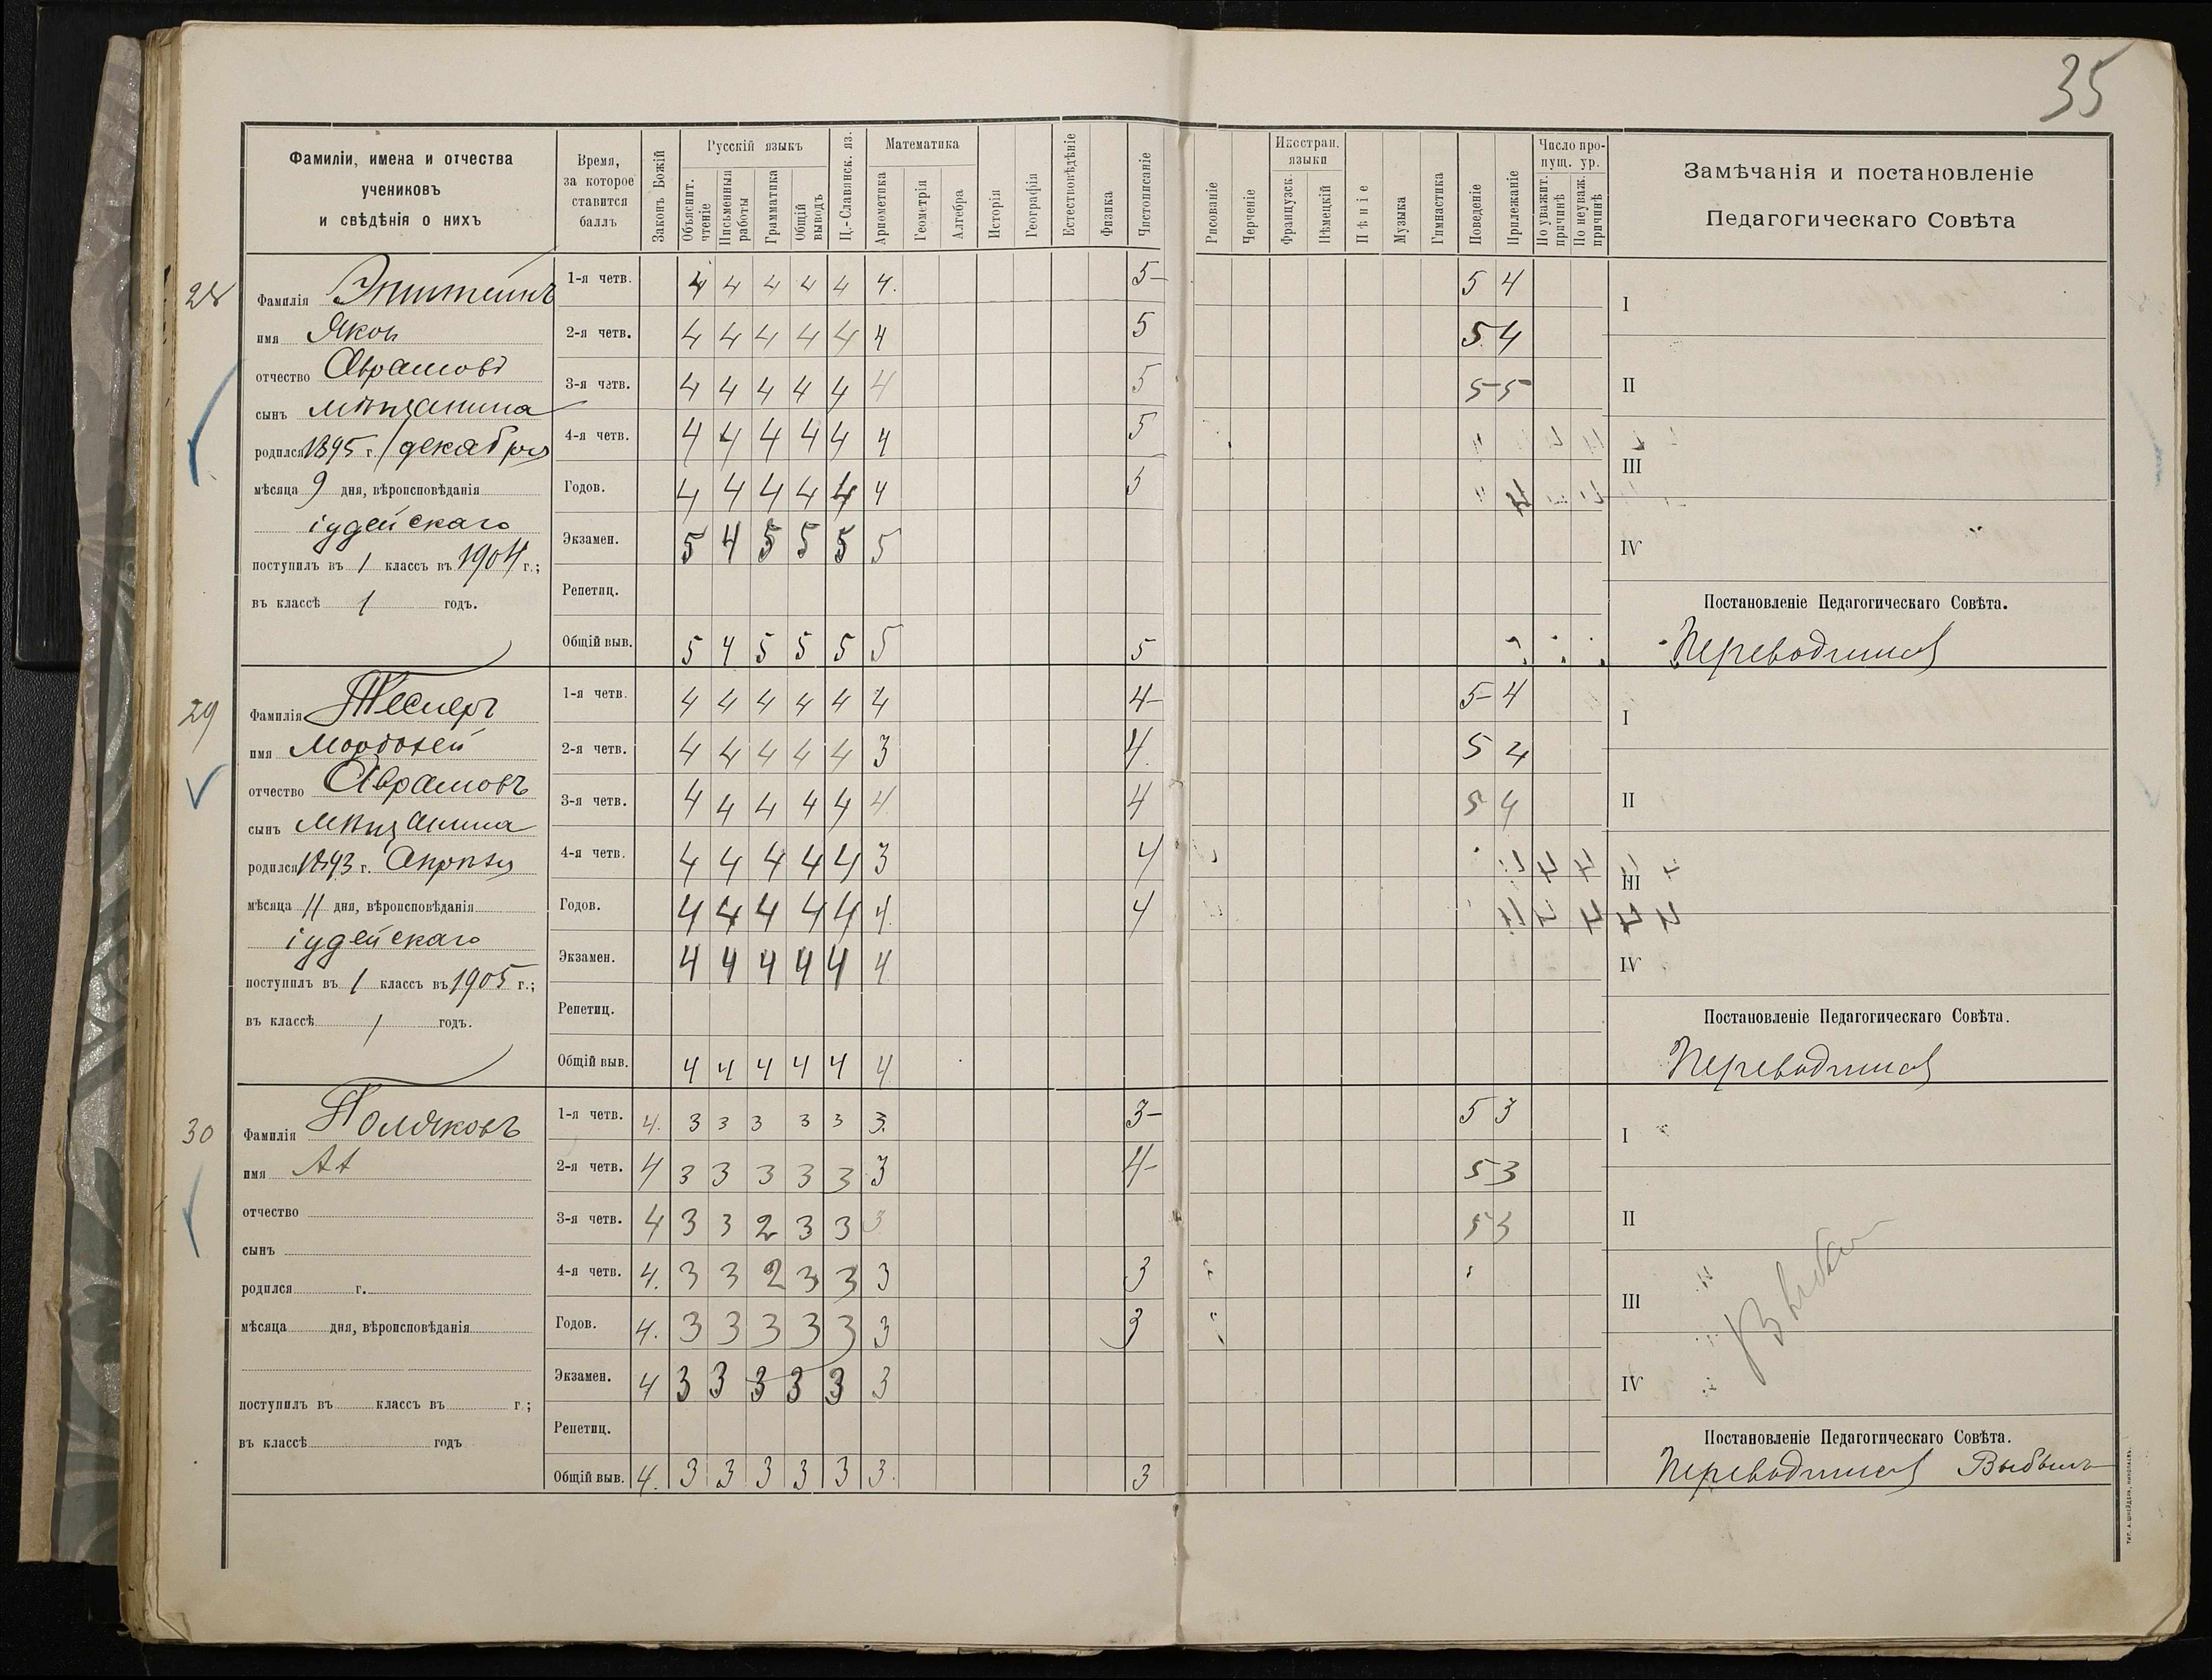 35
Фамиліи, имена и отчества
учениковъ
и свѣдѣнія о нихъ
Время,
за которое
ставится
баллъ
Законъ Божій
Русскій языкъ
Объяснит. чтеніе
Письменныя работы
Грамматика
Общій выводъ
Ц.-Славянск. яз.
Математика
Ариѳметика
Геометрія
Алгебра
Исторія
Географія
Естествовѣдѣніе
Физика
Чистописаніе
Рисованіе
Черченіе
Иностран. языки
Французск.
Нѣмецкій
Пѣніе
Музыка
Гимнастика
Поведеніе
Прилежаніе
Число пропущ. ур.
По уважит. причинѣ
По неуваж. причинѣ
Замѣчанія и постановленіе
Педагогическаго Совѣта
28
Фамилія Эпштейнъ
имя Яковъ
отчество Абрамовъ
сынъ мѣщанина
родился 1895 г. декабря
мѣсяца 9 дня, вѣроисповѣданія
іудейскаго
поступилъ въ 1 классъ въ 1904 г.;
въ классѣ 1 годъ.
1-я четв. 4 4 4 4 4 4. 5- 5 4
2-я четв. 4 4 4 4 4 4 5 5 4
3-я четв. 4 4 4 4 4 4 5 5 5
4-я четв. 4 4 4 4 4 4 5
Годов. 4 4 4 4 4 4 5
Экзамен. 5 4 5 5 5 5
Репетиц.
Общій выв. 5 4 5 5 5 5 5
I
II
III
IV
Постановленіе Педагогическаго Совѣта.
Переводится
29
Фамилія
имя Мордохей
отчество Абрамовъ
сынъ мѣщанина
родился 1893 г. Апрѣля
мѣсяца 11 дня, вѣроисповѣданія
іудейскаго
поступилъ въ 1 классъ въ 1905 г.;
въ классѣ 1 годъ.
1-я четв. 4 4 4 4 4 4 4- 5- 4
2-я четв. 4 4 4 4 4 3 4. 5 4
3-я четв. 4 4 4 4 4 4. 4 5 4
4-я четв. 4 4 4 4 4 3 4
Годов. 4 4 4 4 4 4. 4
Экзамен. 4 4 4 4 4 4.
Репетиц.
Общій выв. 4 4 4 4 4 4.
I
II
III
IV
Постановленіе Педагогическаго Совѣта.
Переводится
30
Фамилія Поляковъ
имя
отчество
сынъ
родился г.
мѣсяца дня, вѣроисповѣданія
поступилъ въ классъ въ г.;
въ классѣ годъ
1-я четв. 4. 3 3 3 3 3 3. 3- 5 3
2-я четв. 4 3 3 3 3 3 3 4- 5 3
3-я четв. 4 3 3 2 3 3 3 5 3
4-я четв. 4. 3 3 2 3 3 3 3
Годов. 4. 3 3 3 3 3 3 3
Экзамен. 4 3 3 3 3 3 3
Репетиц.
Общій выв. 4. 3 3 3 3 3 3. 3
I
II
III
IV
Постановленіе Педагогическаго Совѣта.
Переводится Выбылъ
Тип. А. Шнейдеръ, Николаевъ.